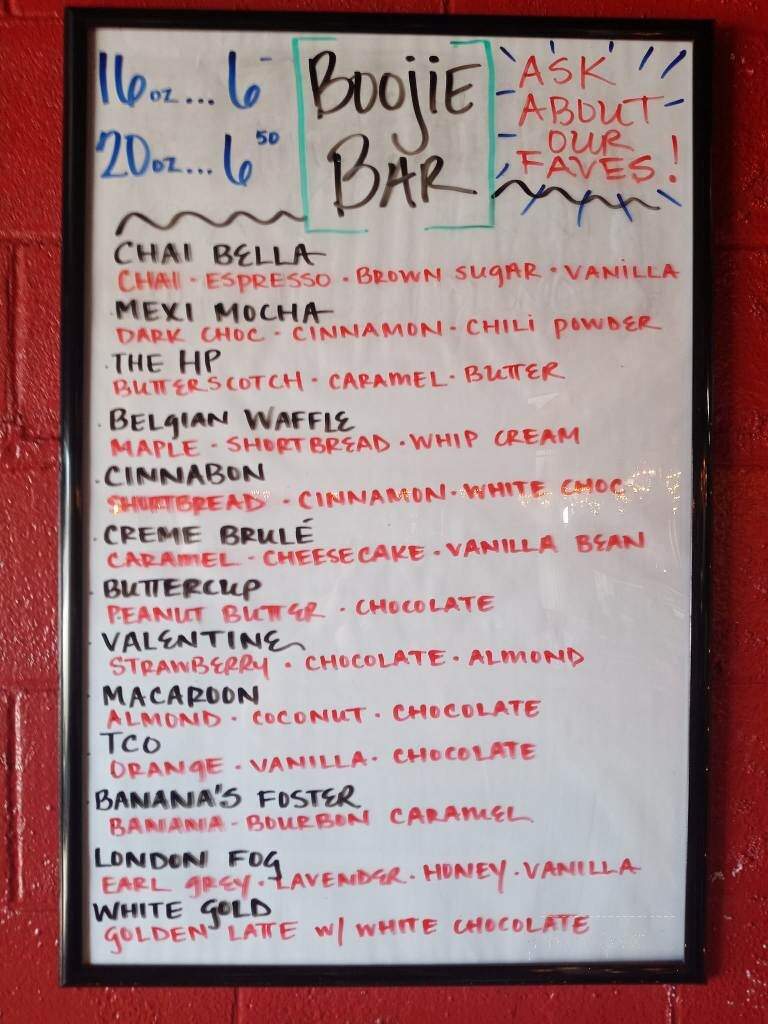 16oz... 6-
20oz... 6 50
BOOJIE
BAR
ASK
ABOUT
OUR
FAVES!
CHAI BELLA
CHAI · ESPRESSO · BROWN SUGAR · VANILLA
MEXI MOCHA
DARK CHOC · CINNAMON · CHILI POWDER
· THE HP
BUTTERSCOTCH · CARAMEL · BUTTER
· BELGIAN WAFFLE
MAPLE · SHORTBREAD · WHIP CREAM
· CINNABON
SHORTBREAD · CINNAMON · WHITE CHOC
· CREME BRULÉ
CARAMEL · CHEESECAKE · VANILLA BEAN
BUTTERCUP
PEANUT BUTTER · CHOCOLATE
VALENTINE
STRAWBERRY · CHOCOLATE · ALMOND
MACAROON
ALMOND · COCONUT · CHOCOLATE
TCO
ORANGE · VANILLA · CHOCOLATE
BANANA'S FOSTER
BANANA · BOURBON CARAMEL
LONDON FOG
EARL GREY · LAVENDER · HONEY · VANILLA
WHITE GOLD
GOLDEN LATTE W/ WHITE CHOCOLATE